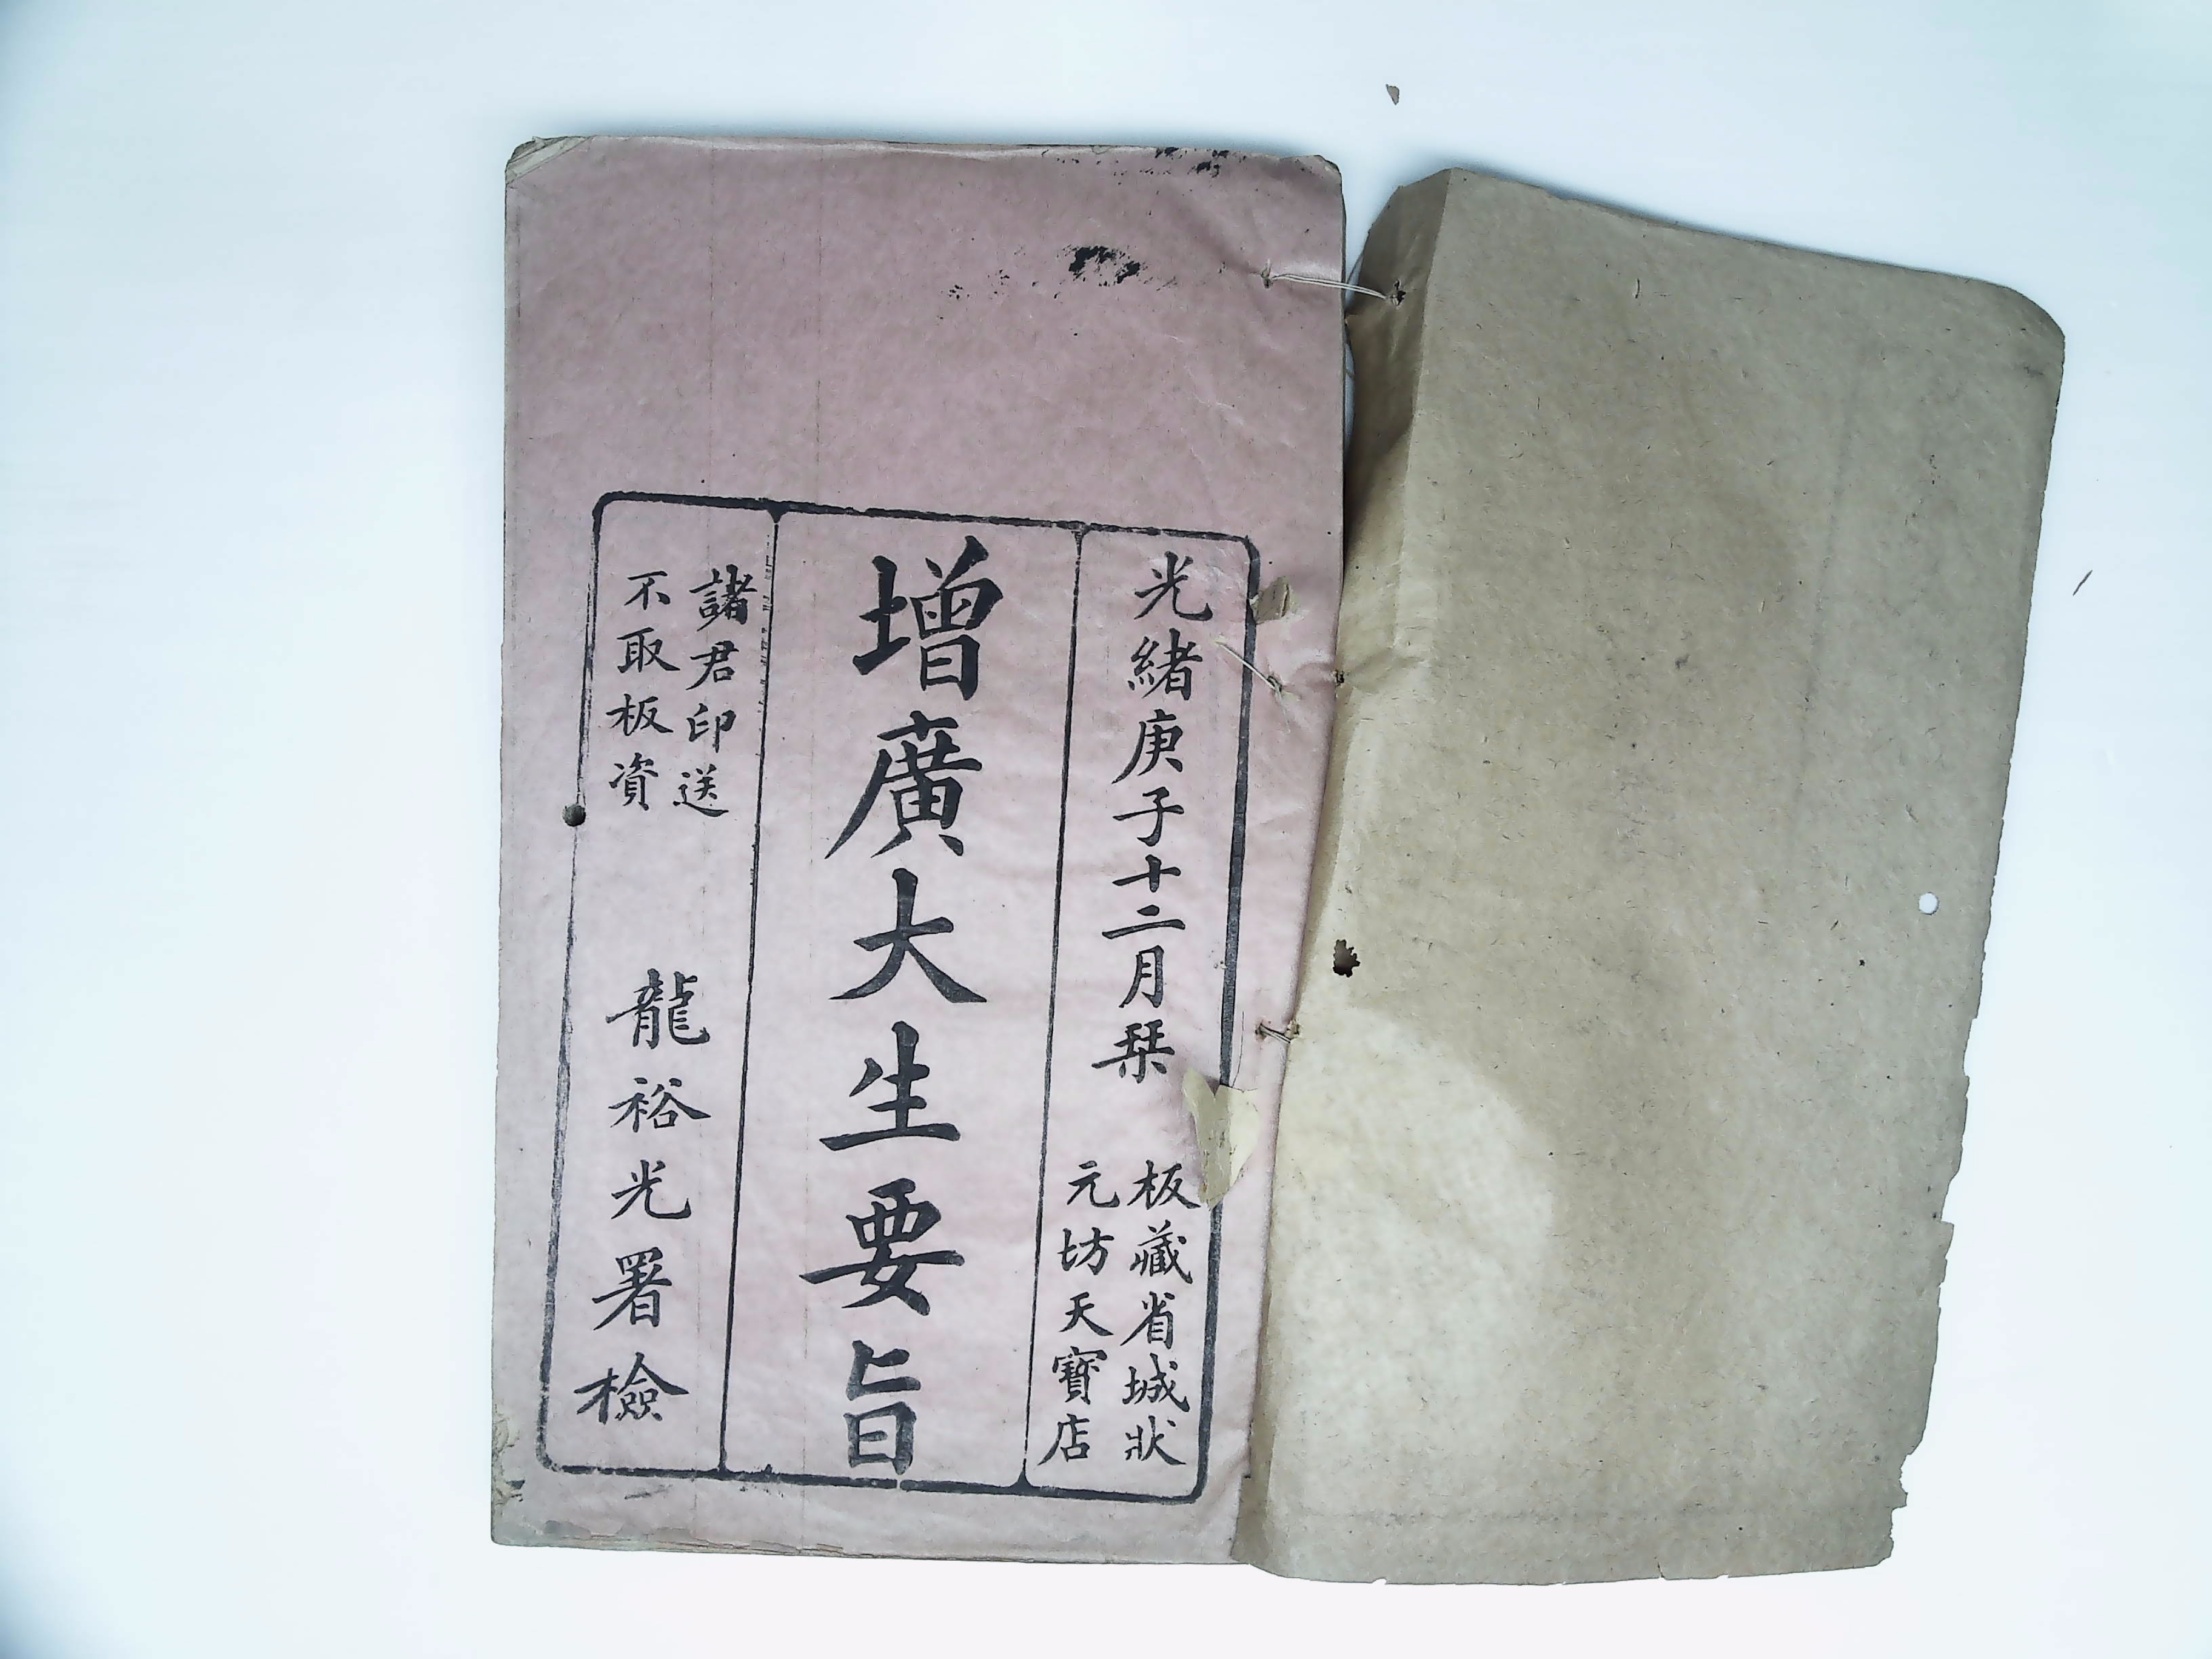 光緒庚子十二月栞
板藏省城狀
元坊天寶店
增廣大生要旨
諸君印送
不取板資
龍裕光署檢